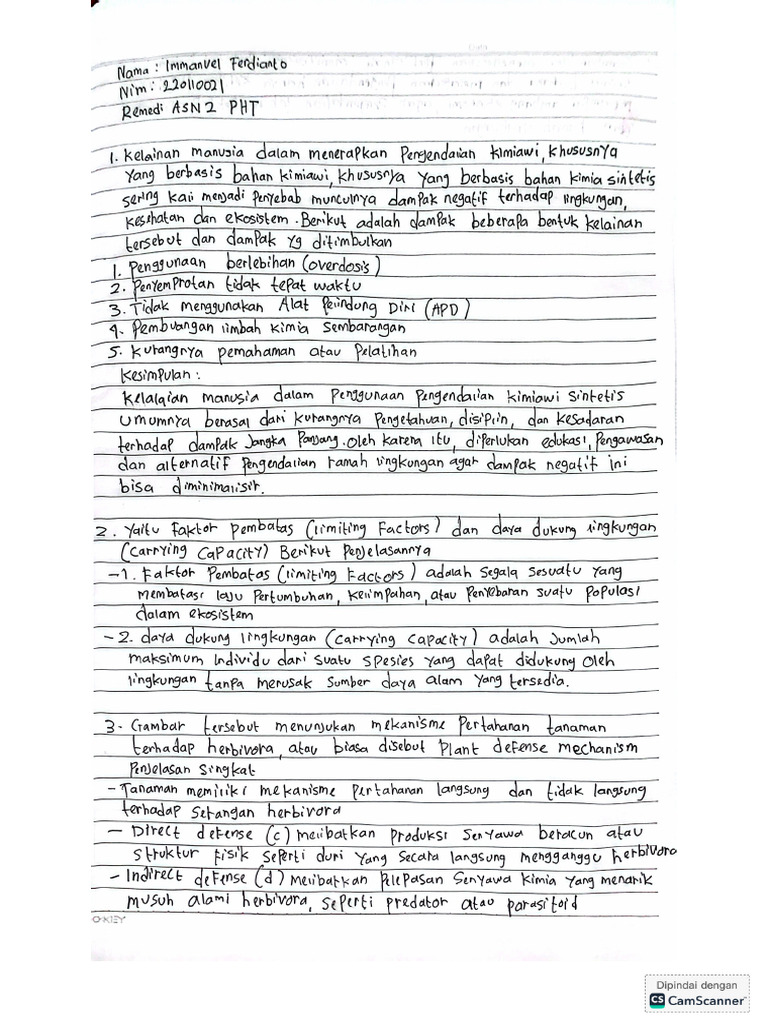 Nama : Immanuel Ferdianto
Nim : 220110021
Remedi ASN 2 PHT
1. Kelainan manusia dalam menerapkan Pengendalian kimiawi, khususnya
yang berbasis bahan kimiawi, khususnya yang berbasis bahan kimia sintetis
sering kali menjadi penyebab munculnya dampak negatif terhadap lingkungan,
kesehatan dan ekosistem. Berikut adalah dampak beberapa bentuk kelainan
tersebut dan dampak yg ditimbulkan
1. Penggunaan berlebihan (overdosis)
2. Penyemprotan tidak tepat waktu
3. Tidak menggunakan Alat Pelindung Diri (APD)
4. Pembuangan limbah kimia sembarangan
5. kurangnya pemahaman atau Pelatihan
Kesimpulan :
Kelalaian manusia dalam penggunaan pengendalian kimiawi sintetis
umumnya berasal dari kurangnya Pengetahuan, disiplin, dan kesadaran
terhadap dampak Jangka Panjang. oleh karena itu, diperlukan edukasi, Pengawasan
dan alternatif Pengendalian ramah lingkungan agar dampak negatif ini
bisa diminimalisir.
2. Yaitu Faktor Pembatas (limiting Factors) dan daya dukung lingkungan
(carrying capacity) Berikut Penjelasannya
-1. Faktor Pembatas (limiting Factors) adalah segala sesuatu yang
membatasi laju Pertumbuhan, kelimpahan, atau Penyebaran suatu Populasi
dalam ekosistem
-2. daya dukung lingkungan (carrying capacity) adalah Jumlah
maksimum individu dari suatu spesies yang dapat didukung oleh
lingkungan tanpa merusak sumber daya alam yang tersedia.
3- Gambar tersebut menunjukan mekanisme Pertahanan tanaman
terhadap herbivora, atau biasa disebut Plant defense mechanism
Penjelasan singkat
- Tanaman memiliki mekanisme pertahanan langsung dan tidak langsung
terhadap serangan herbivora
- Direct defense (c) melibatkan produksi senyawa beracun atau
struktur fisik seperti duri yang secara langsung mengganggu herbivora
- Indirect defense (d) melibatkan pelepasan senyawa kimia yang menarik
musuh alami herbivora, seperti predator atau parasitoid
O-KIEY
Dipindai dengan
CS CamScanner